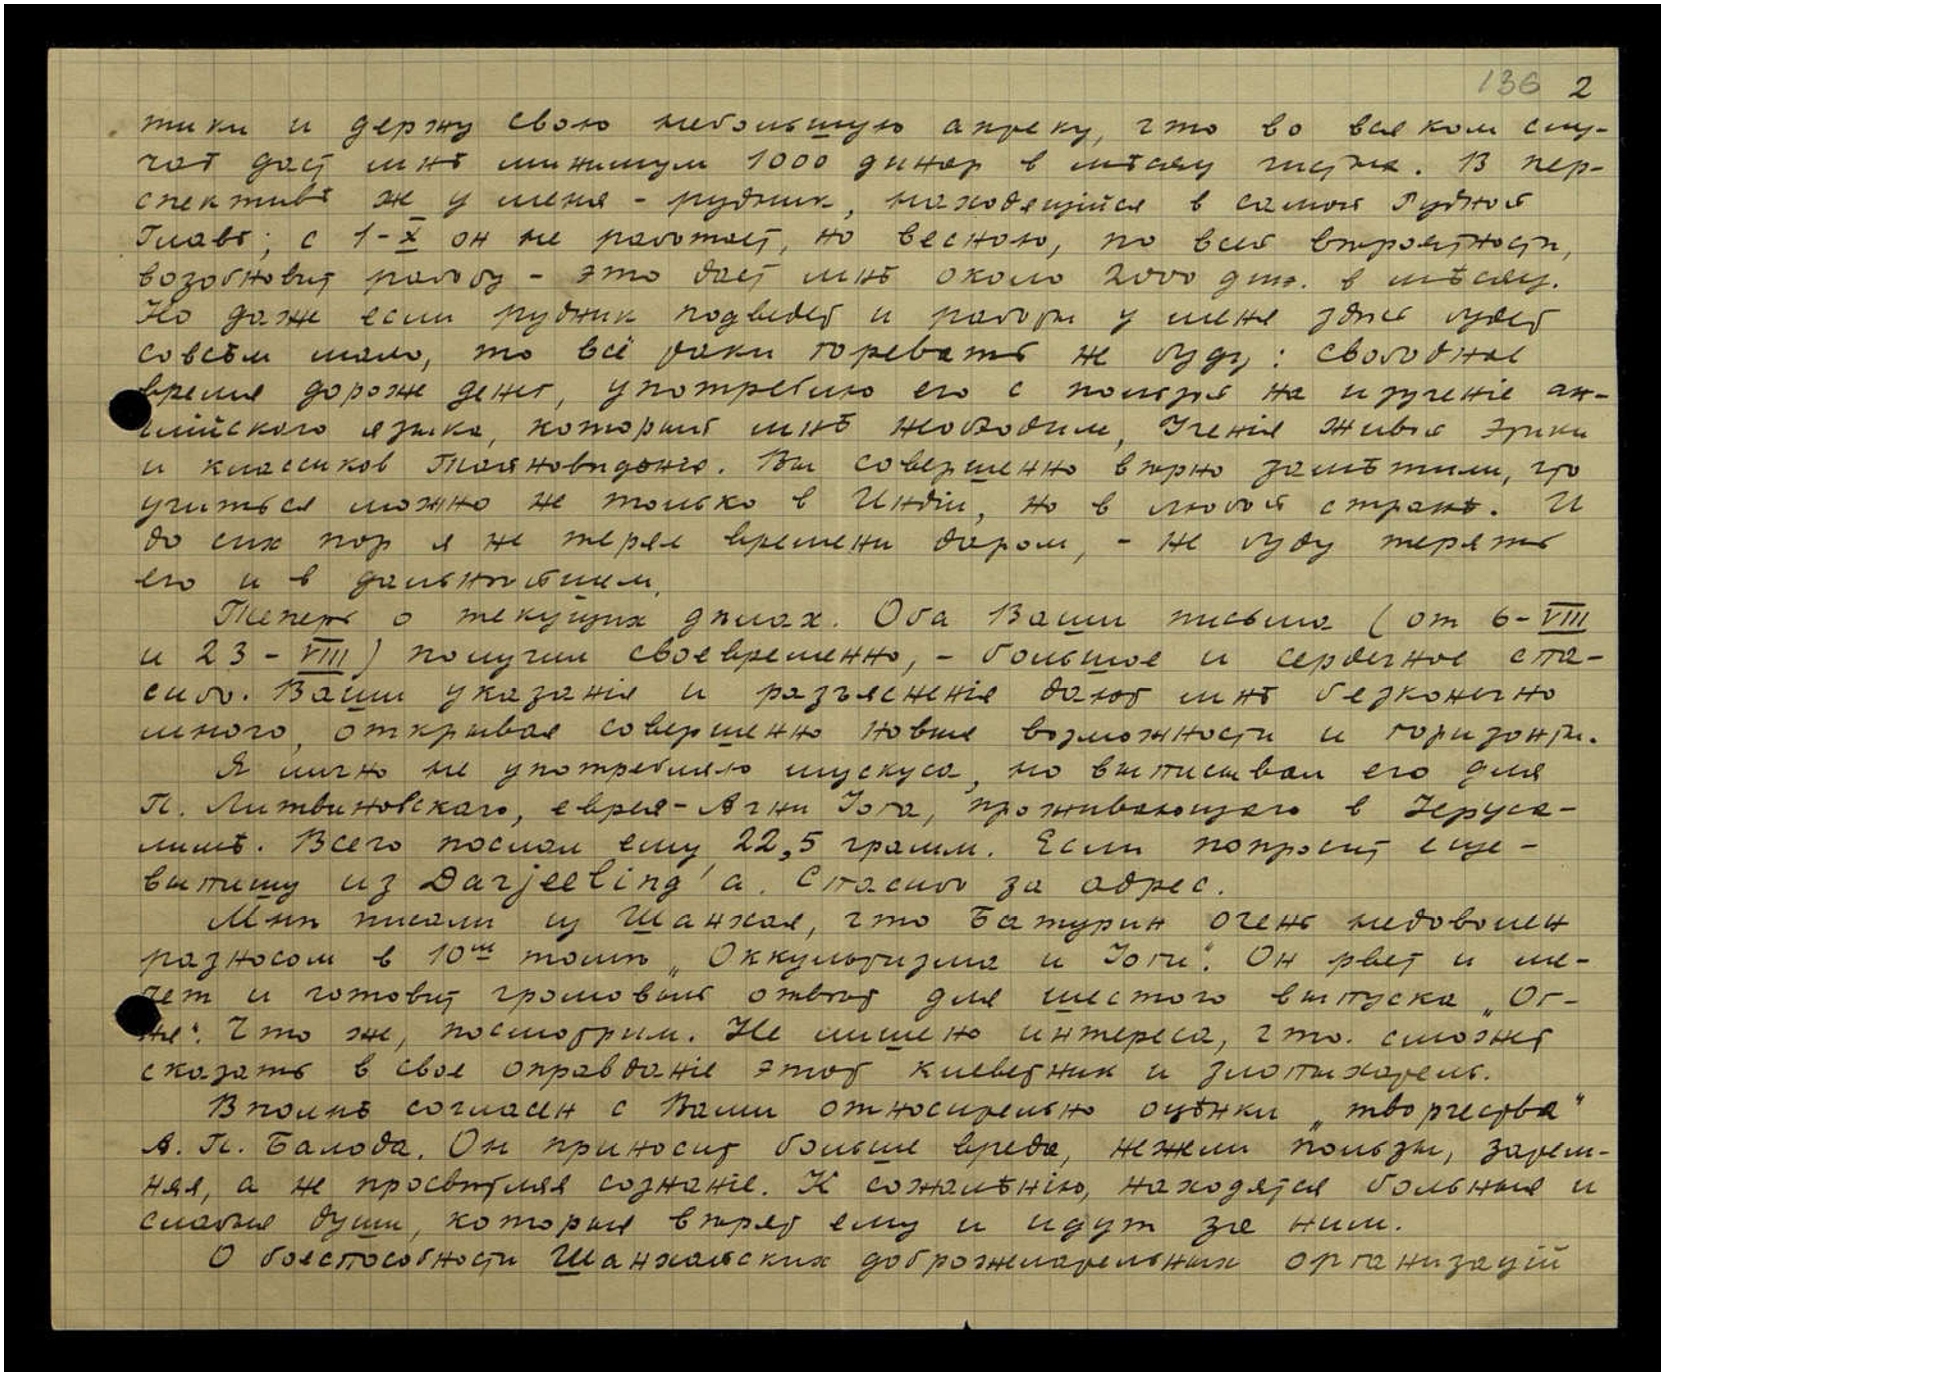 136 2
тики и держу свою небольшую аптеку, что во всяком слу-
чаѣ даст мнѣ минимум 1000 динар в мѣсяц чистых. В пер-
спективѣ ж у меня - рудник, находящійся в самой Рудной
Главѣ; с 1-X он не работает, но весною, по всей вѣроятности,
возобновит работу - это даст мнѣ около 2000 дин. в мѣсяц.
Но даж если рудник подведет и работы у меня здѣсь будет
совсѣм мало, то всё таки горевать не буду: свободное
время дорож денег, употреблю его с пользой на изученіе ан-
глійского языка, который мнѣ необходим, Ученія Живой Этики
и классиков Тайновидѣнія. Вы совершенно вѣрно замѣтили, что
учиться можно не только в Индіи, но в любой странѣ. И
до сих пор я не терял времени даром, - не буду терять
его и в дальнѣйшем.
Теперь о текущих дѣлах. Оба Ваши письма (от 6-VIII
и 23-VIII) получил своевременно, - большое и сердечное спа-
сибо. Ваши указанія и разъясненія дают мнѣ безконечно
много, открывая совершенно новые возможности и горизонты.
Я лично не употребляю мускуса, но выписывал его для
П. Литвиновскаго, еврея-Агни Іога, проживающаго в Іеруса-
лимѣ. Всего послал ему 22,5 грамм. Если попросит еще -
выпишу из Darjeeling'а. Спасибо за адрес.
Мнѣ писали из Шанхая, что Батурин очень недоволен
разносом в 10ом томѣ „Оккультизма и Іоги". Он рвет и ме-
чет и готовит громовый отвѣт для шестого выпуска „Ог-
ня". Что ж, посмотрим. Не лишено интереса, что сможет
сказать в свое оправданіе этот клеветник и злопыхатель.
Вполнѣ согласен с Вами относительно оцѣнки „творчества"
А. П. Балода. Он приносит больше вреда, нежели пользы, затем-
няя, а не просвѣтляя сознаніе. К сожалѣнію, находятся больные и
слабые души, которые вѣрят ему и идут за ним.
О боеспособности Шанхайских доброжелательных организацій